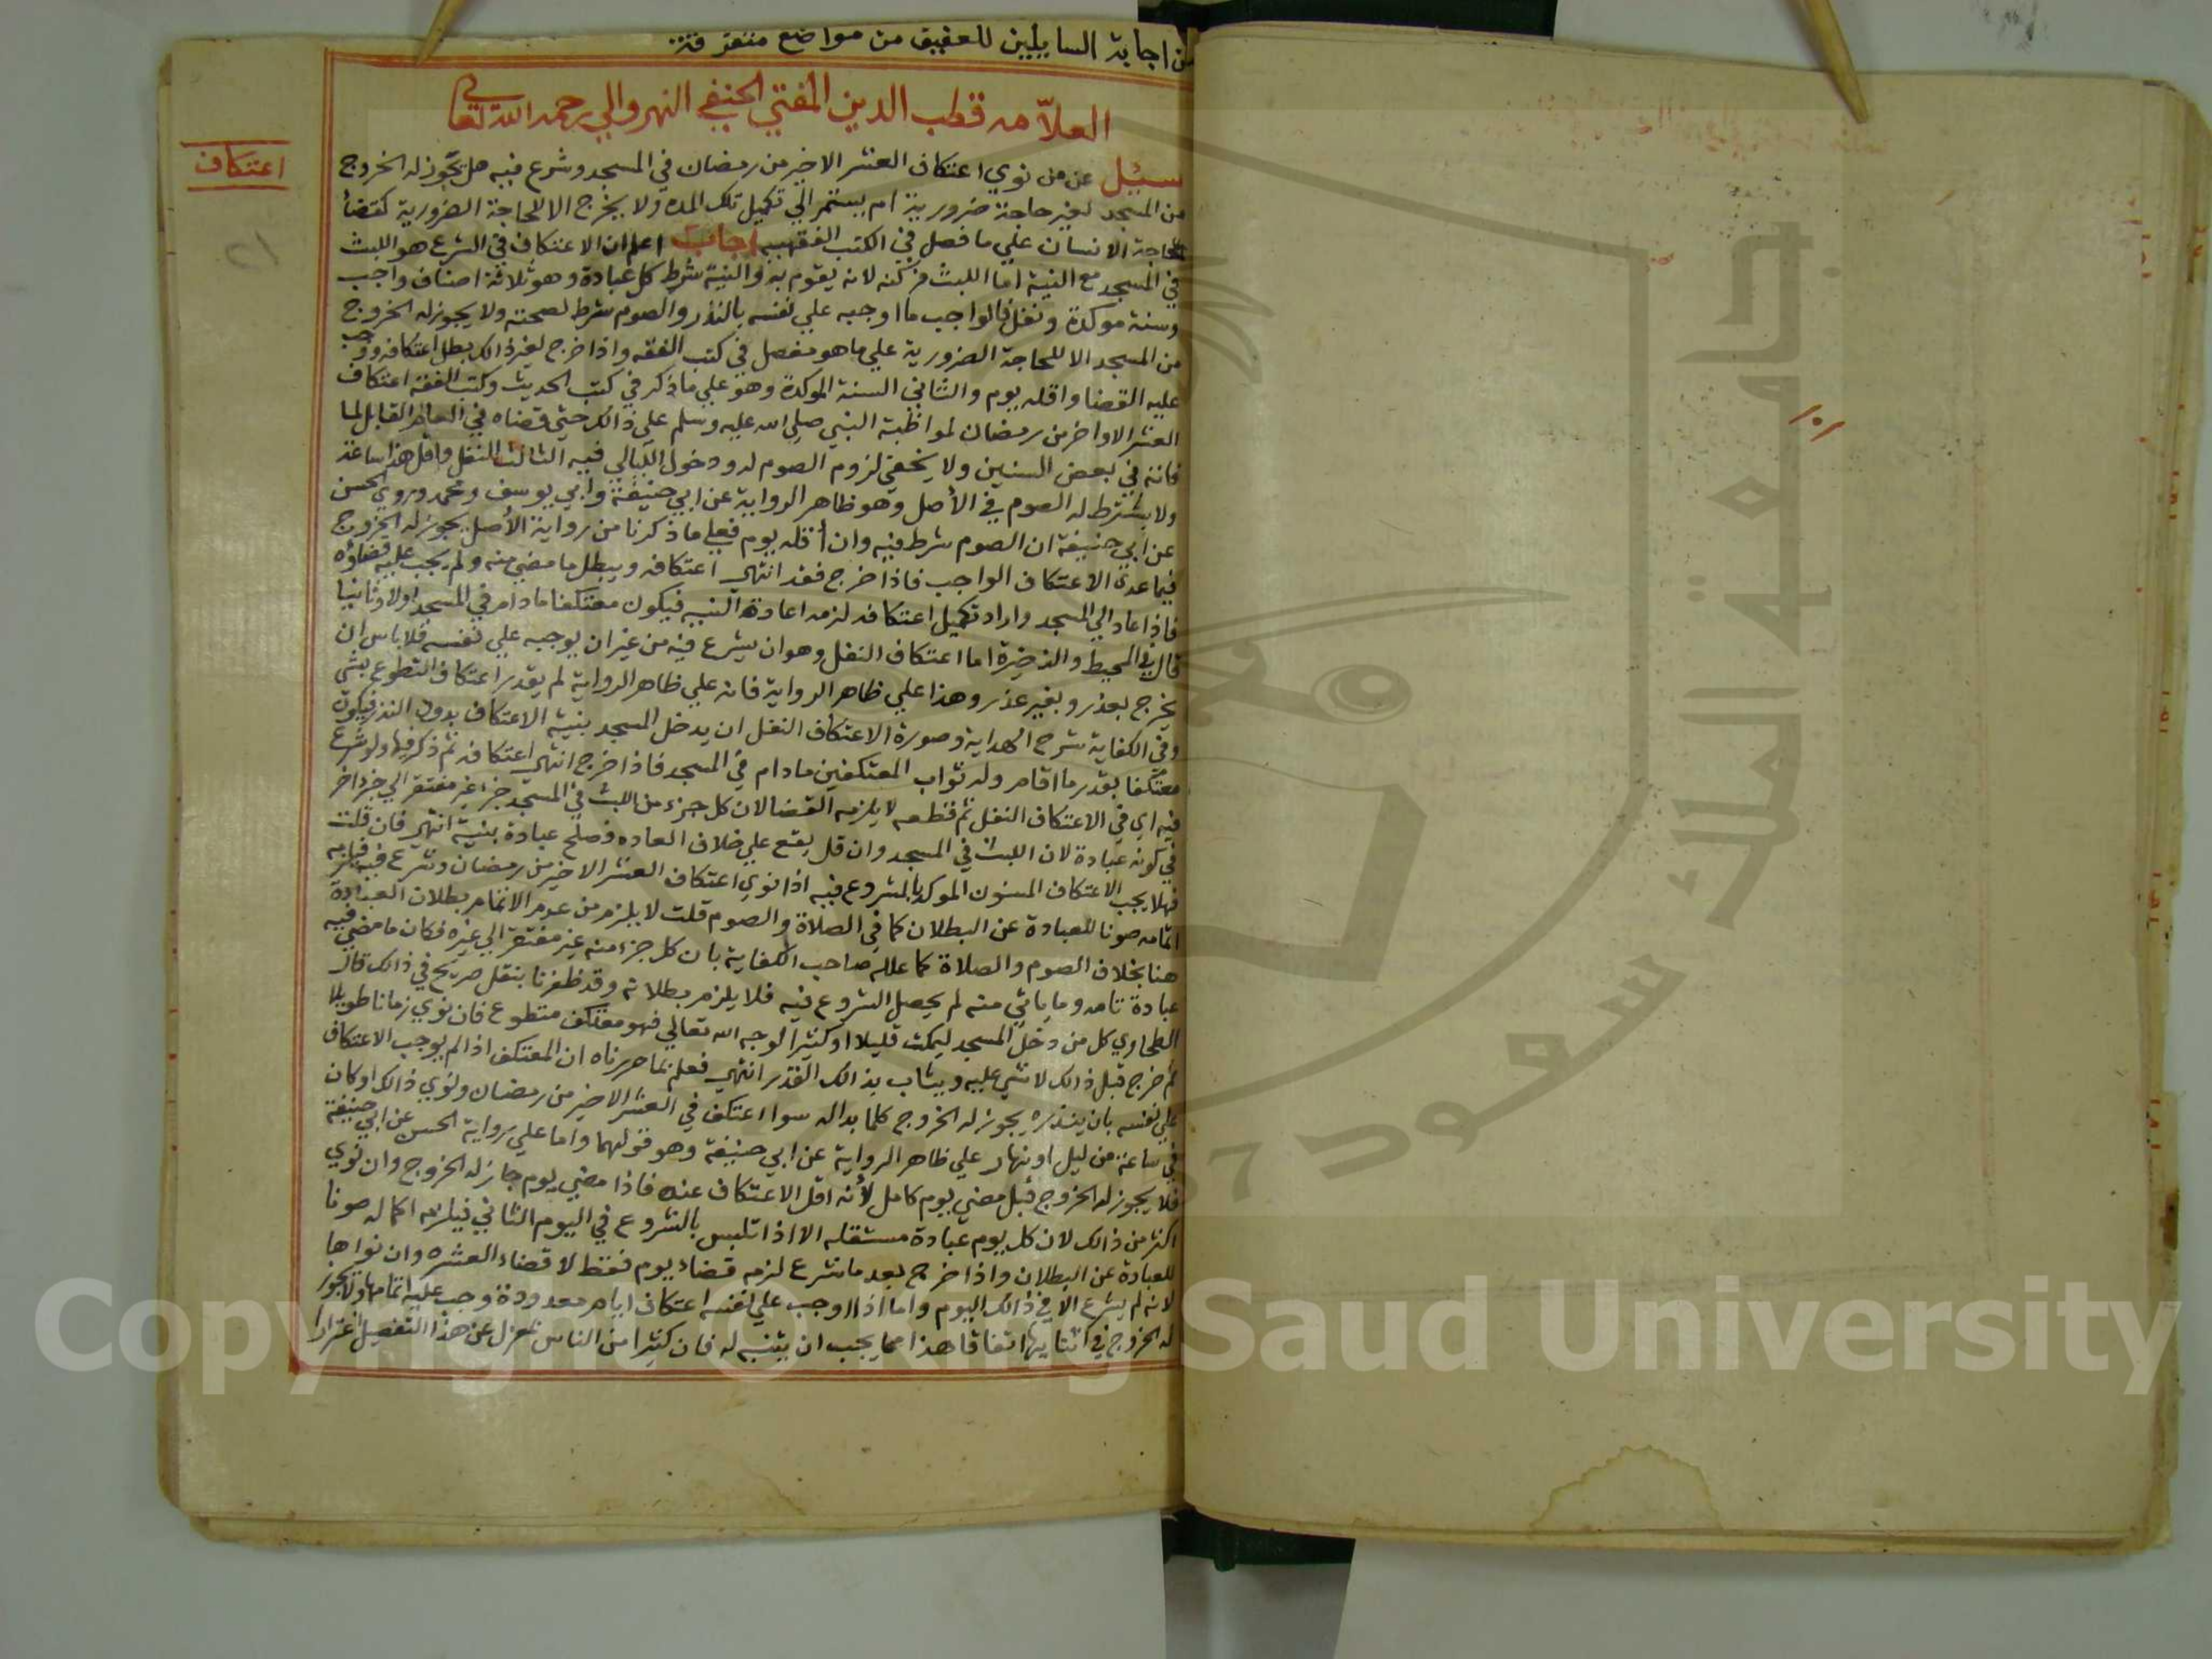 من اجابة السايلين للعفيف من مواضع متفرقة
العلامه قطب الدين المفتي الحنفي النهروالي رحمه الله تعالي
اعتكاف
سئل عن من نوي اعتكاف العشر الاخير من رمضان في المسجد وشرع فيه هل يجوز له الخروج
من المسجد لغير حاجة ضرورية ام يستمر الي تكميل تلك المده ولا يخرج الا للحاجة الضرورية كقضا
حاجة الانسان علي ما فصل في الكتب الفقهيه اجاب اعلم ان الاعتكاف في الشرع هو اللبث
في المسجد مع النية اما اللبث فركنه لانه يقوم به والنية شرط كل عبادة وهو ثلاثة اصناف واجب
وسنة موكدة ونفل فالواجب ما اوجبه علي نفسه بالنذر والصوم شرط لصحته ولا يجوز له الخروج
من المسجد الا للحاجة الضرورية علي ما هو مفصل في كتب الفقه واذا خرج لغير ذالك بطل اعتكافه ووجب
عليه القضا واقله يوم والثاني السنة الموكدة وهو علي ما ذكر في كتب الحديث وكتب الفقه اعتكاف
العشر الاواخر من رمضان لمواظبة النبي صلي الله عليه وسلم علي ذالك حتي قضاه في العام القابل لما
فاتته في بعض السنين ولا يخفي لزوم الصوم له ودخول الليالي فيه الثالث النفل واقل هذا ساعة
ولا يشترط له الصوم في الأصل وهو ظاهر الرواية عن ابي حنيفة وابي يوسف ومحمد وروي الحسن
عن ابي حنيفة ان الصوم شرط فيه وان أقله يوم فعلي ما ذكرنا من رواية الأصل يجوز له الخروج
فيما عدي الاعتكاف الواجب فاذا خرج فقد انتهي اعتكافه ويبطل ما مضي منه ولم يجب عليه قضاؤه
فاذا عاد الي المسجد واراد تكميل اعتكافه لزمه اعادة النيه فيكون معتكفا مادام في المسجد اولا وثانيا
قال في المحيط والذخيرة اما اعتكاف النفل وهو ان يشرع فيه من غير ان يوجبه علي نفسه فلا باس ان
يخرج بعذر وبغير عذر وهذا علي ظاهر الرواية فانه علي ظاهر الرواية لم يقدر اعتكاف التطوع بشي
وفي الكفاية شرح الهداية وصورة الاعتكاف النفل ان يدخل المسجد بنية الاعتكاف بدون النذر فيكون
معتكفا بقدر ما اقام وله ثواب المعتكفين مادام في المسجد فاذا خرج انتهي اعتكافه ثم ذكر فيها ولو شرع
فيه اي في الاعتكاف النفل ثم قطعه لا يلزمه القضا لان كل جزء من اللبث في المسجد جزء غير مفتقر الي جزء اخر
في كونه عبادة لان اللبث في المسجد وان قل يقع علي خلاف العاده فصلح عبادة بنية انتهي فان قلت
فهلا يجب الاعتكاف المسنون الموكد بالشروع فيه اذا نوي اعتكاف العشر الاخير من رمضان وشرع فيه فيلزمه
اتمامه صونا للعبادة عن البطلان كما في الصلاة والصوم قلت لا يلزم من عدم الاتمام بطلان العبادة
هنا بخلاف الصوم والصلاة كما علله صاحب الكفاية بان كل جزء منه غير مفتقر الي غيره فكان ما مضي فيه
عبادة تامه وما ياتي منه لم يحصل الشروع فيه فلا يلزم بطلانه وقد ظفرنا بنقل صريح في ذالك قال
الطحاوي كل من دخل المسجد ليمكث قليلا او كثيرا لوجه الله تعالي فهو معتكف متطوع فان نوي زمانا طويلا
ثم خرج قبل ذالك لا شي عليه ويثاب بذالك القدر انتهي فعلم بما حررناه ان المعتكف اذا لم يوجب الاعتكاف
علي نفسه بان ينذره يجوز له الخروج كلما بدا له سوا اعتكف في العشر الاخير من رمضان ونوي ذالك او كان
في ساعة من ليل او نهار علي ظاهر الرواية عن ابي حنيفة وهو قولهما واما علي رواية الحسن عن ابي حنيفة
فلا يجوز له الخروج قبل مضي يوم كامل لأنه اقل الاعتكاف عنده فاذا مضي يوم جاز له الخروج وان نوي
اكثر من ذالك لان كل يوم عبادة مستقله الا اذا تلبس بالشروع في اليوم الثاني فيلزمه اكماله صونا
للعبادة عن البطلان واذا خرج بعد ما شرع لزمه قضاء يوم فقط لا قضاء العشره وان نواها
لانه لم يشرع الا في ذالك اليوم واما اذا اوجب علي نفسه اعتكاف ايام معدودة وجب عليه اتمامها ولا يجوز
له الخروج في اثنايها اتفاقا هذا مما يجب ان يتنبه له فان كثيرا من الناس بمعزل عن هذا التفصيل اغترارا
١٠١
جامعة الملك سعود
Copyright © King Saud University